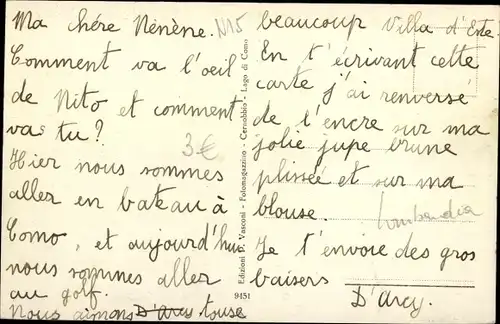 Ma chére Nénène.
Comment va l'oeil
de Nito et comment
vas tu?
Hier nous sommes
aller en bateau à
Como, et aujourd'hui
nous sommes aller
au golf.
Nous aimons D'Arcy touse
beaucoup Villa d'Este.
En t'écrivant cette
carte j'ai renversé
de l'encre sur ma
jolie jupe brune
plissée et sur ma
blouse.
Je t'envoie des gros
baisers
D'Arcy.
N15
3€
Lombardia
Edizioni P. Vasconi - Fotomagazzino - Cernobbio - Lago di Como
9451